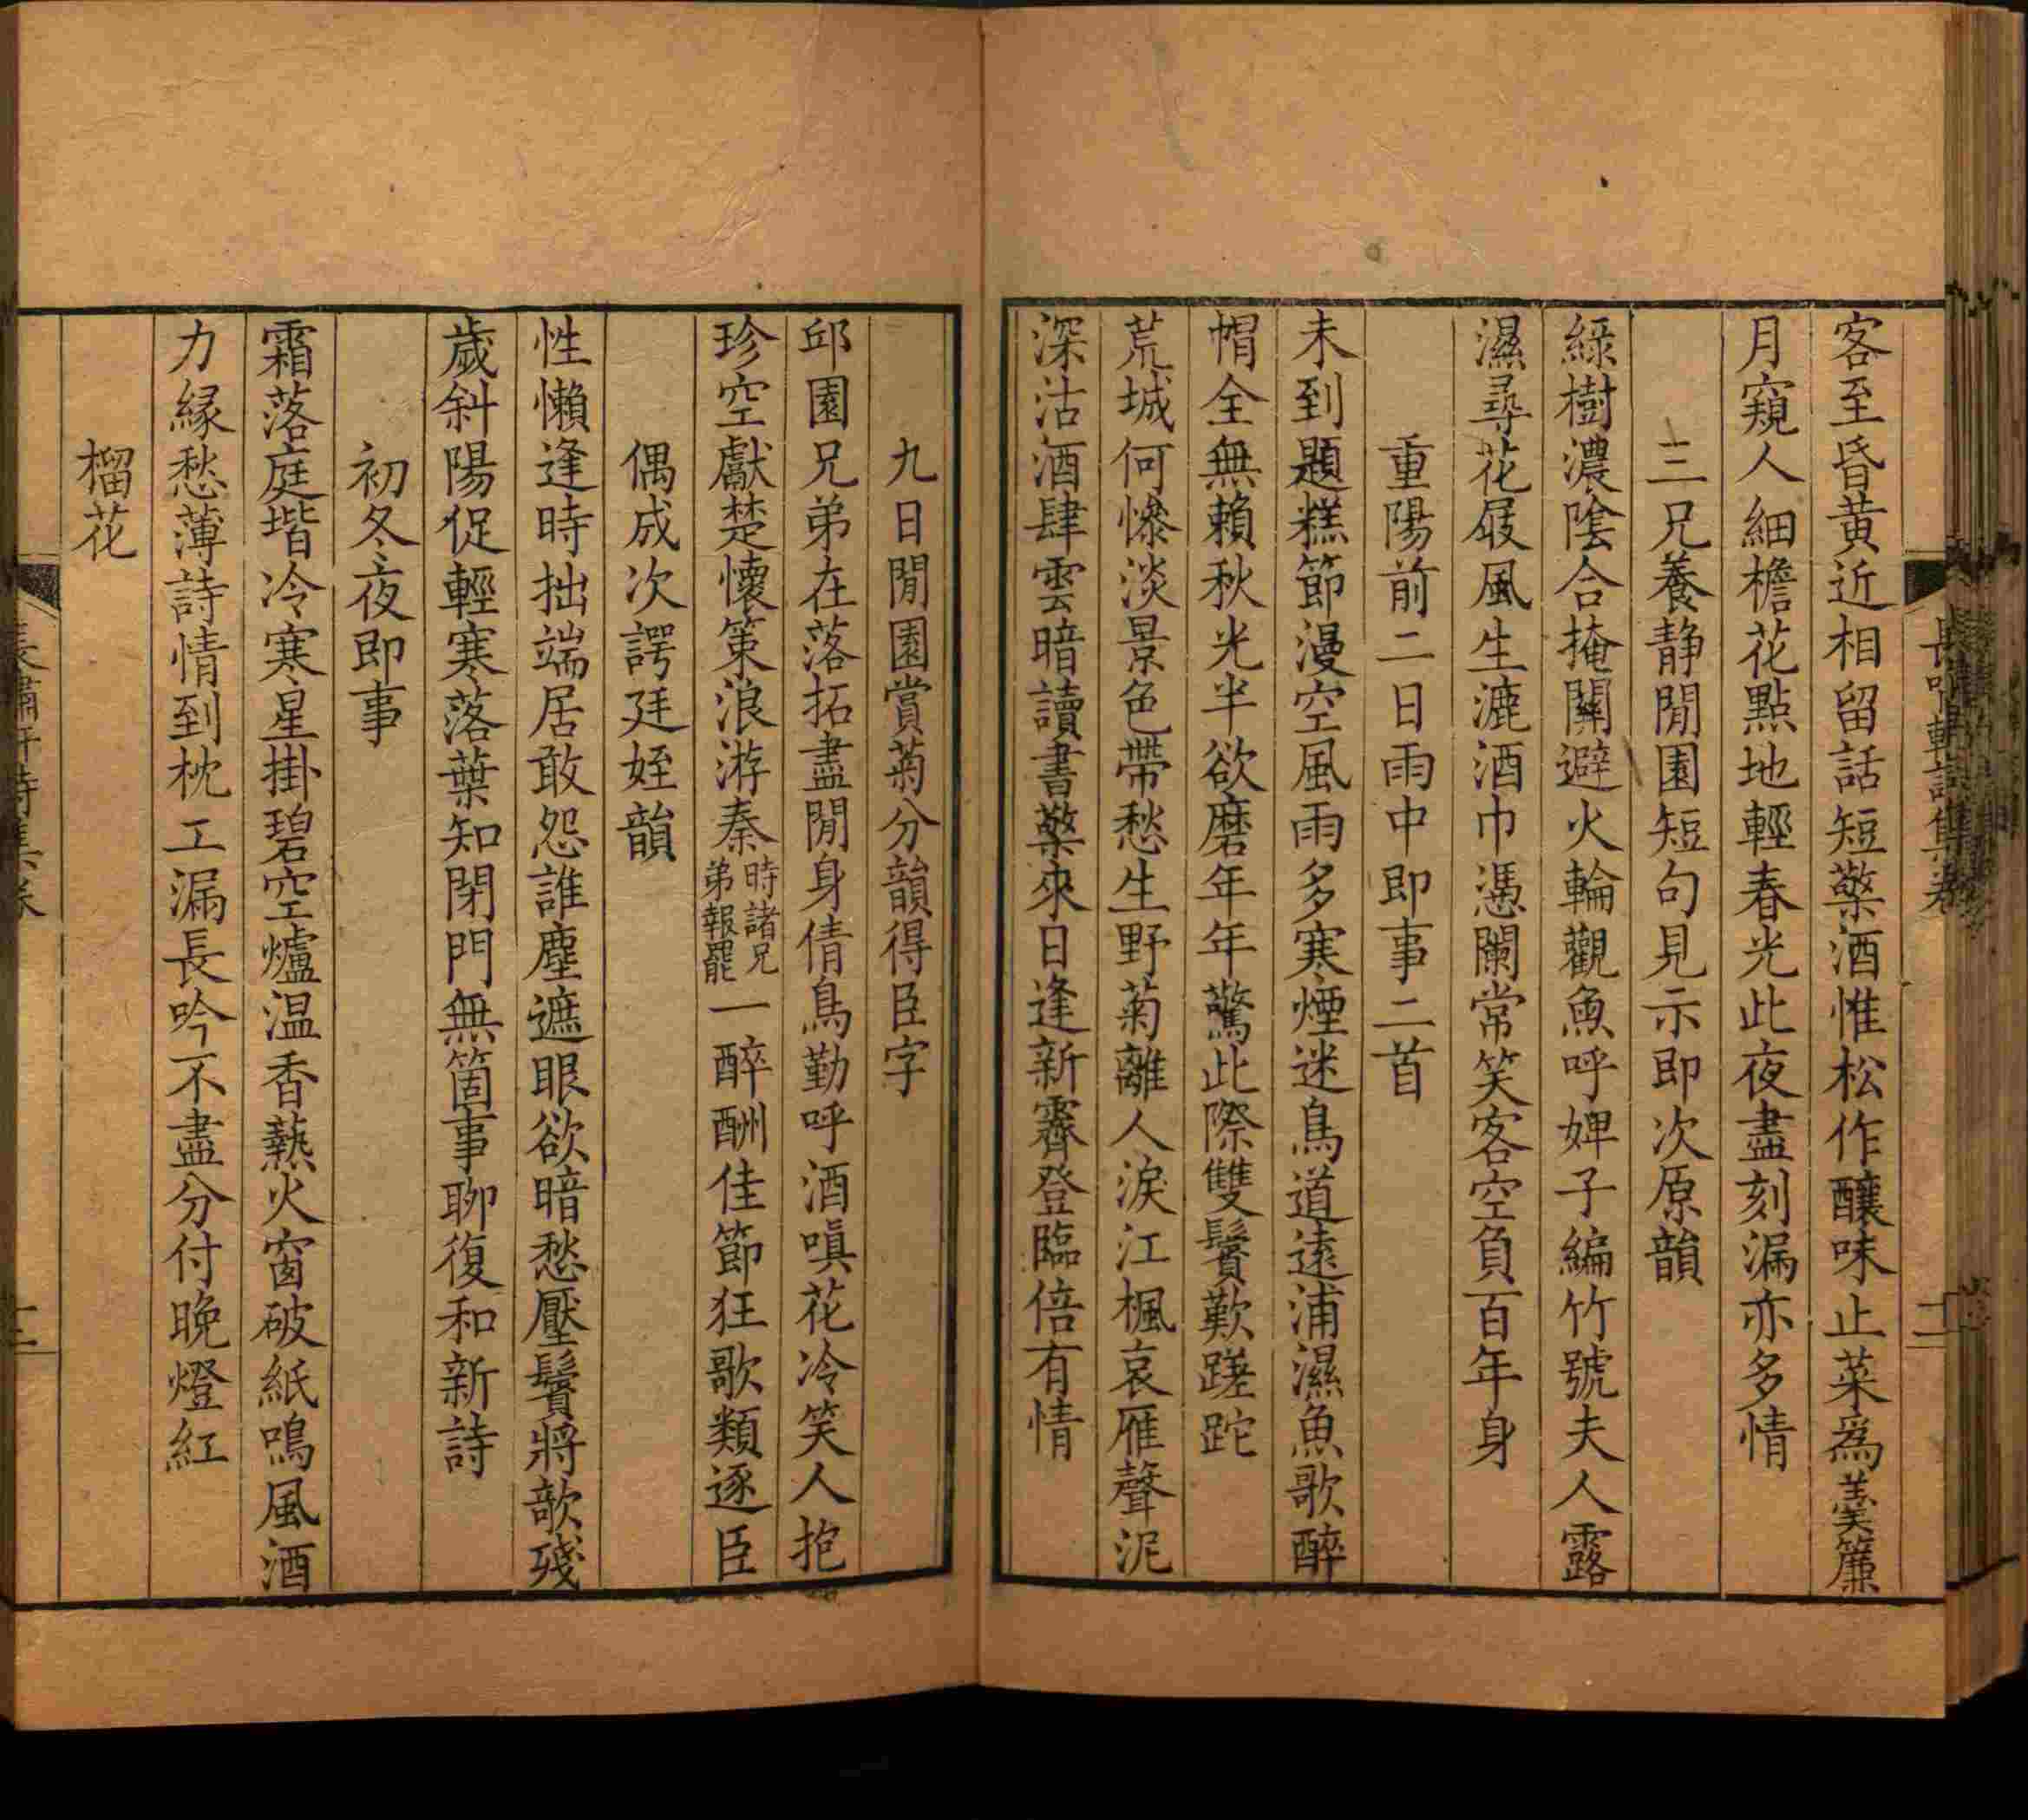 客至昏黃近相留話短檠酒惟松作釀味止菜爲羹簾
月窺人細檐花點地輕春光此夜盡刻漏亦多情
三兄養静閒園短句見示即次原韻
綠樹濃陰合掩關避火輪觀魚呼婢子編竹號夫人露
濕尋花屐風生漉酒巾憑闌常笑客空負百年身
重陽前二日雨中即事二首
未到題糕節漫空風雨多寒煙迷鳥道遠浦濕魚歌醉
帽全無賴秋光半欲磨年年驚此際雙鬢歎蹉跎
荒城何慘淡景色帶愁生野菊離人淚江楓哀雁聲泥
深沽酒肆雲暗讀書檠來日逢新霽登臨倍有情
九日閒園賞菊分韻得臣字
邱園兄弟在落拓盡閒身倩鳥勤呼酒嗔花冷笑人抱
珍空獻楚懷策浪游秦時諸兄弟報罷一醉酬佳節狂歌類逐臣
偶成次諤廷姪韻
性懶逢時拙端居敢怨誰塵遮眼欲暗愁壓鬢將欹殘
歲斜陽促輕寒落葉知閉門無箇事聊復和新詩
初冬夜即事
霜落庭堦冷寒星掛碧空爐温香爇火窗破紙鳴風酒
力緣愁薄詩情到枕工漏長吟不盡分付晚燈紅
榴花